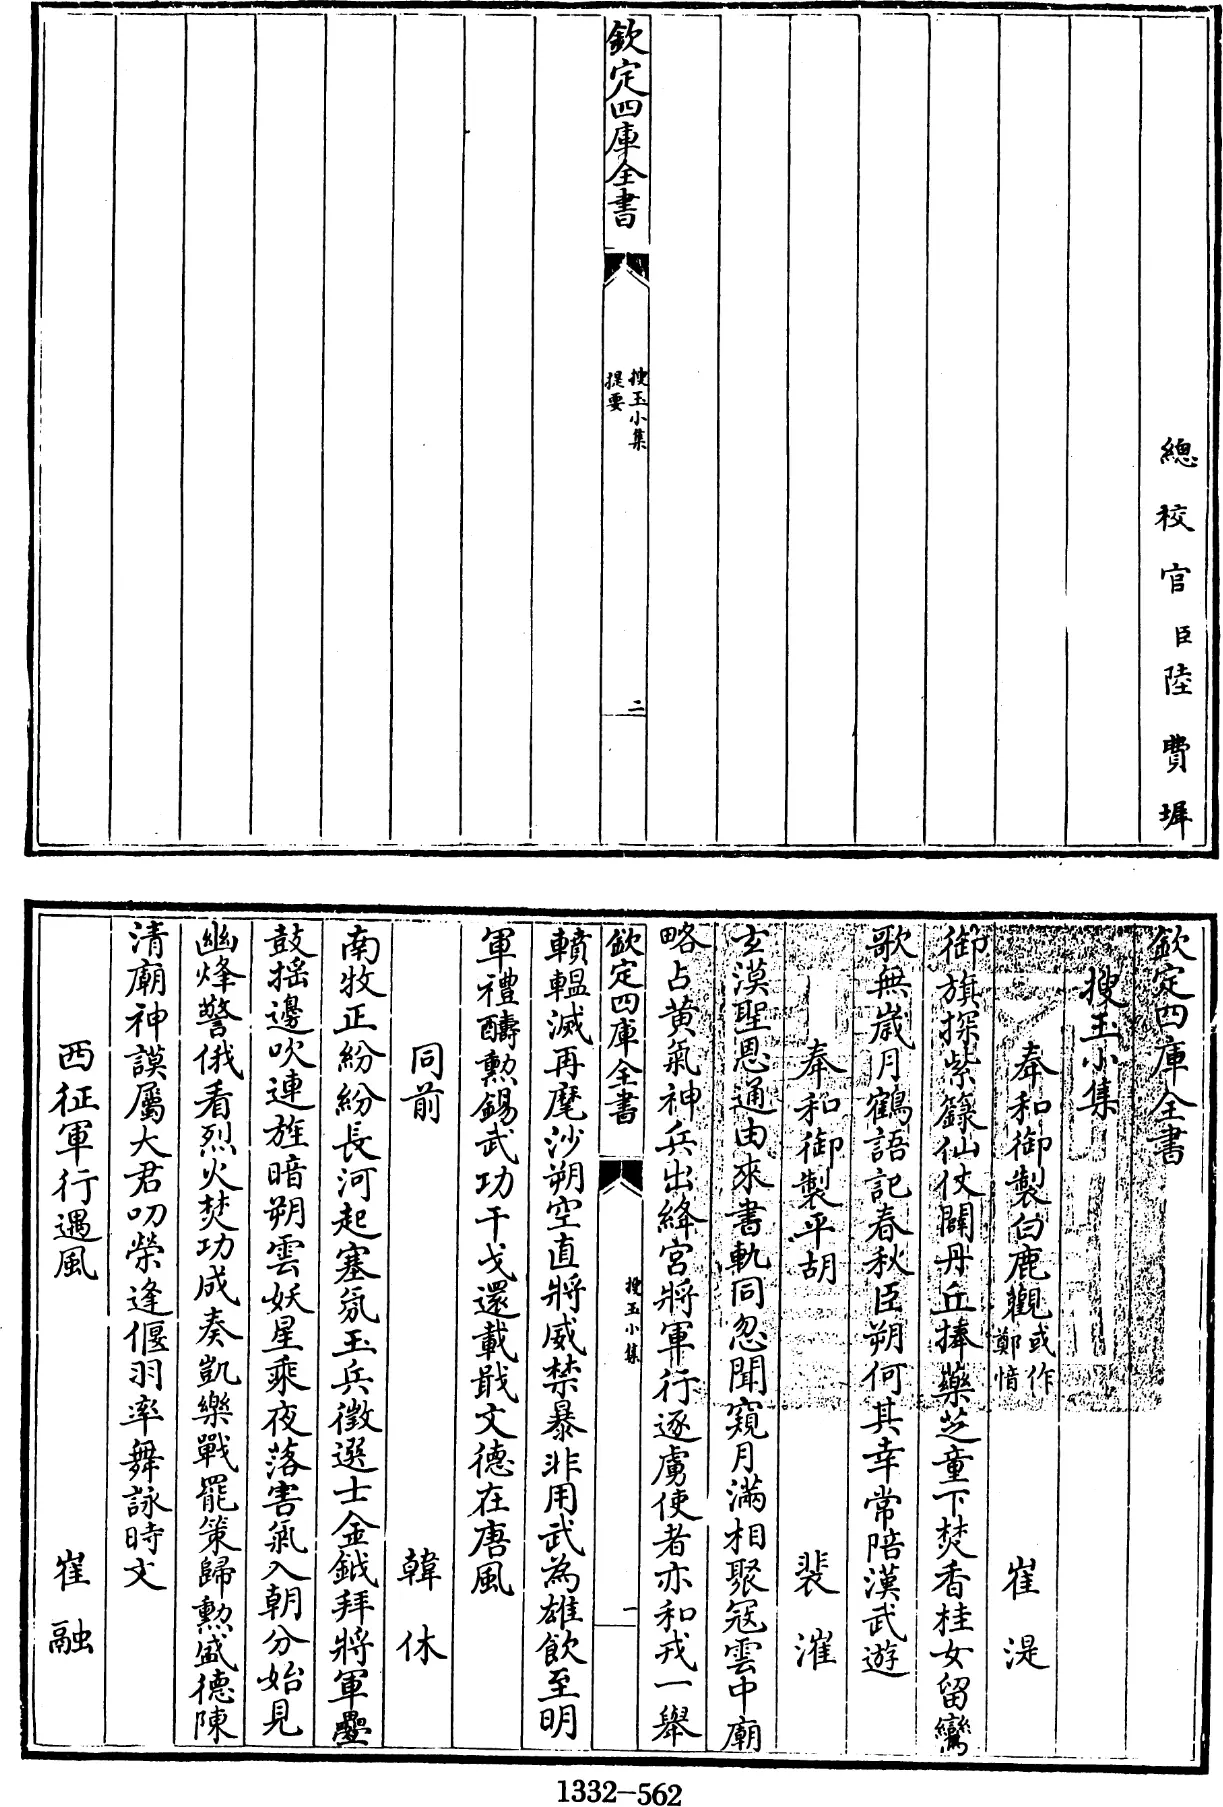 總校官臣陸費墀
欽定四庫全書
搜玉小集
提要
二
欽定四庫全書
搜玉小集
奉和御製白鹿觀或作鄭愔 崔湜
御旗探紫籙仙仗闢丹丘捧藥芝童下焚香桂女留鸞
歌無歲月鶴語記春秋臣朔何其幸常陪漢武遊
奉和御製平胡 裴漼
玄漠聖恩通由來書軌同忽聞窺月滿相聚冦雲中廟
略占黄氣神兵出絳宮將軍行逐虜使者亦和戎一舉
欽定四庫全書
搜玉小集
一
轒輼滅再麾沙朔空直將威禁暴非用武為雄飲至明
軍禮酬勲錫武功干戈還載戢文德在唐風
同前 韓休
南牧正紛紛長河起塞氛玉兵徵選士金鉞拜將軍壘
鼓揺邊吹連旌暗朔雲妖星乘夜落害氣入朝分始見
幽烽警俄看烈火焚功成奏凱樂戰罷策歸勲盛德陳
清廟神謨屬大君叨榮逢偃羽率舞詠時文
西征軍行遇風 崔融
1332-562